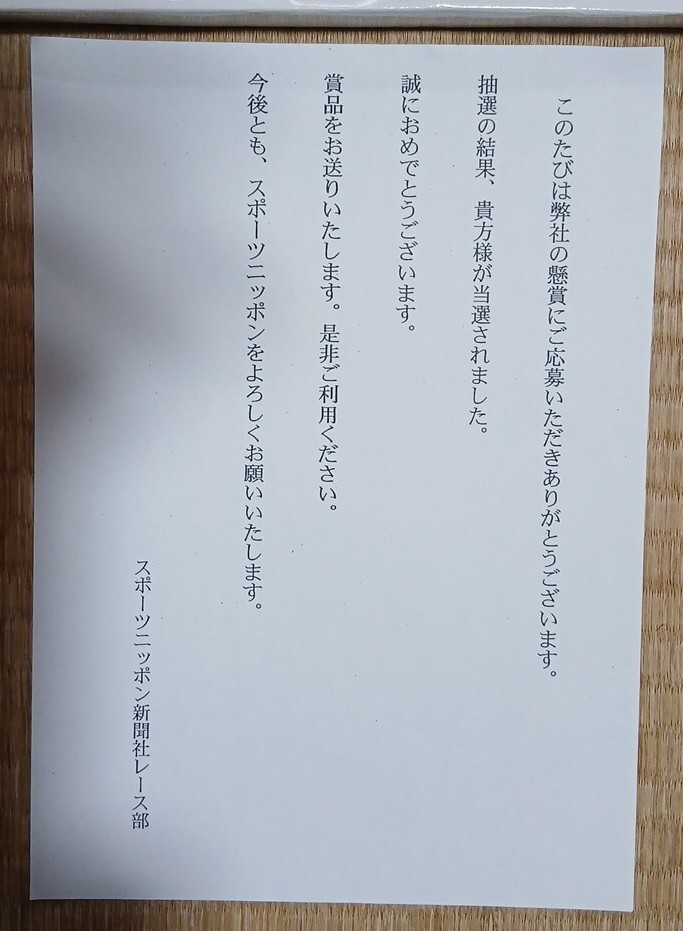 このたびは弊社の懸賞にご応募いただきありがとうございます。
抽選の結果、貴方様が当選されました。
誠におめでとうございます。
賞品をお送りいたします。是非ご利用ください。
今後とも、スポーツニッポンをよろしくお願いいたします。
スポーツニッポン新聞社レース部